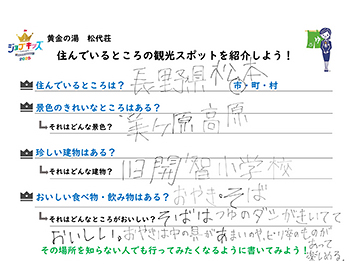 ジョブキッズ
黄金の湯 松代荘
住んでいるところの観光スポットを紹介しよう!
住んでいるところは? 長野県松本 市・町・村
景色のきれいなところはある?
それはどんな景色? 美ケ原高原
珍しい建物はある?
それはどんな建物? 旧開智小学校
おいしい食べ物・飲み物はある? おやき。そば
それはどんなところがおいしい? そばはつゆのダシがきいてて
おいしい。おやきは中の具があまいのや、ピリ辛のものが
あって
楽しめる。
その場所を知らない人でも行ってみたくなるように書いてみよう!